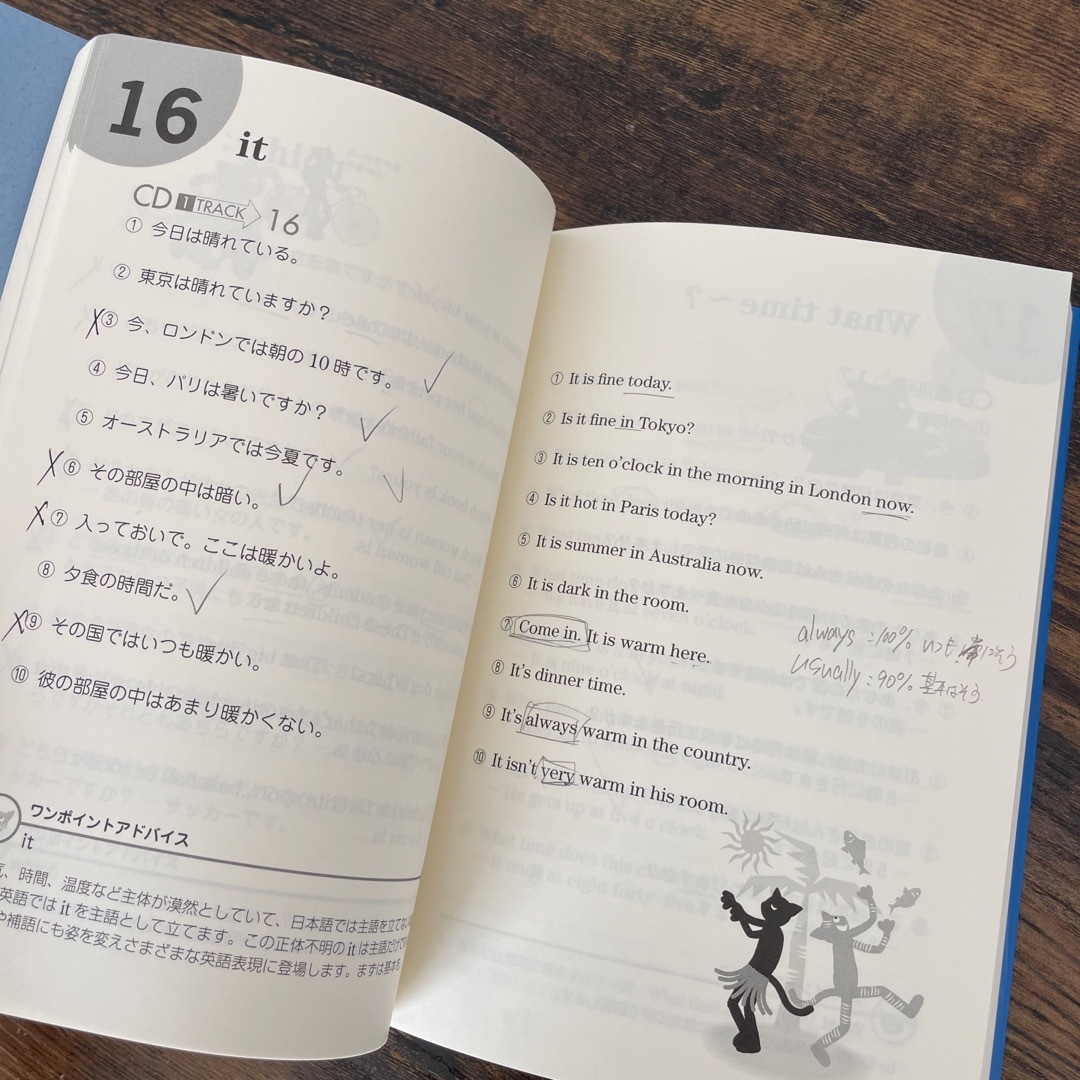 16
it
CD 1 TRACK 16
① 今日は晴れている。
② 東京は晴れていますか？
③ 今、ロンドンでは朝の10時です。
④ 今日、パリは暑いですか？
⑤ オーストラリアでは今夏です。
⑥ その部屋の中は暗い。
⑦ 入っておいで。ここは暖かいよ。
⑧ 夕食の時間だ。
⑨ その国ではいつも暖かい。
⑩ 彼の部屋の中はあまり暖かくない。
ワンポイントアドバイス
it
、時間、温度など主体が漠然としていて、日本語では主語を立てな
英語ではitを主語として立てます。この正体不明のitは主語だけで
や補語にも姿を変えさまざまな英語表現に登場します。まずは基本を
① It is fine today.
② Is it fine in Tokyo?
③ It is ten o'clock in the morning in London now.
④ Is it hot in Paris today?
⑤ It is summer in Australia now.
⑥ It is dark in the room.
⑦ Come in. It is warm here.
⑧ It's dinner time.
⑨ It's always warm in the country.
⑩ It isn't very warm in his room.
always : 100% いつも 常にそう
usually : 90% 基本はそう